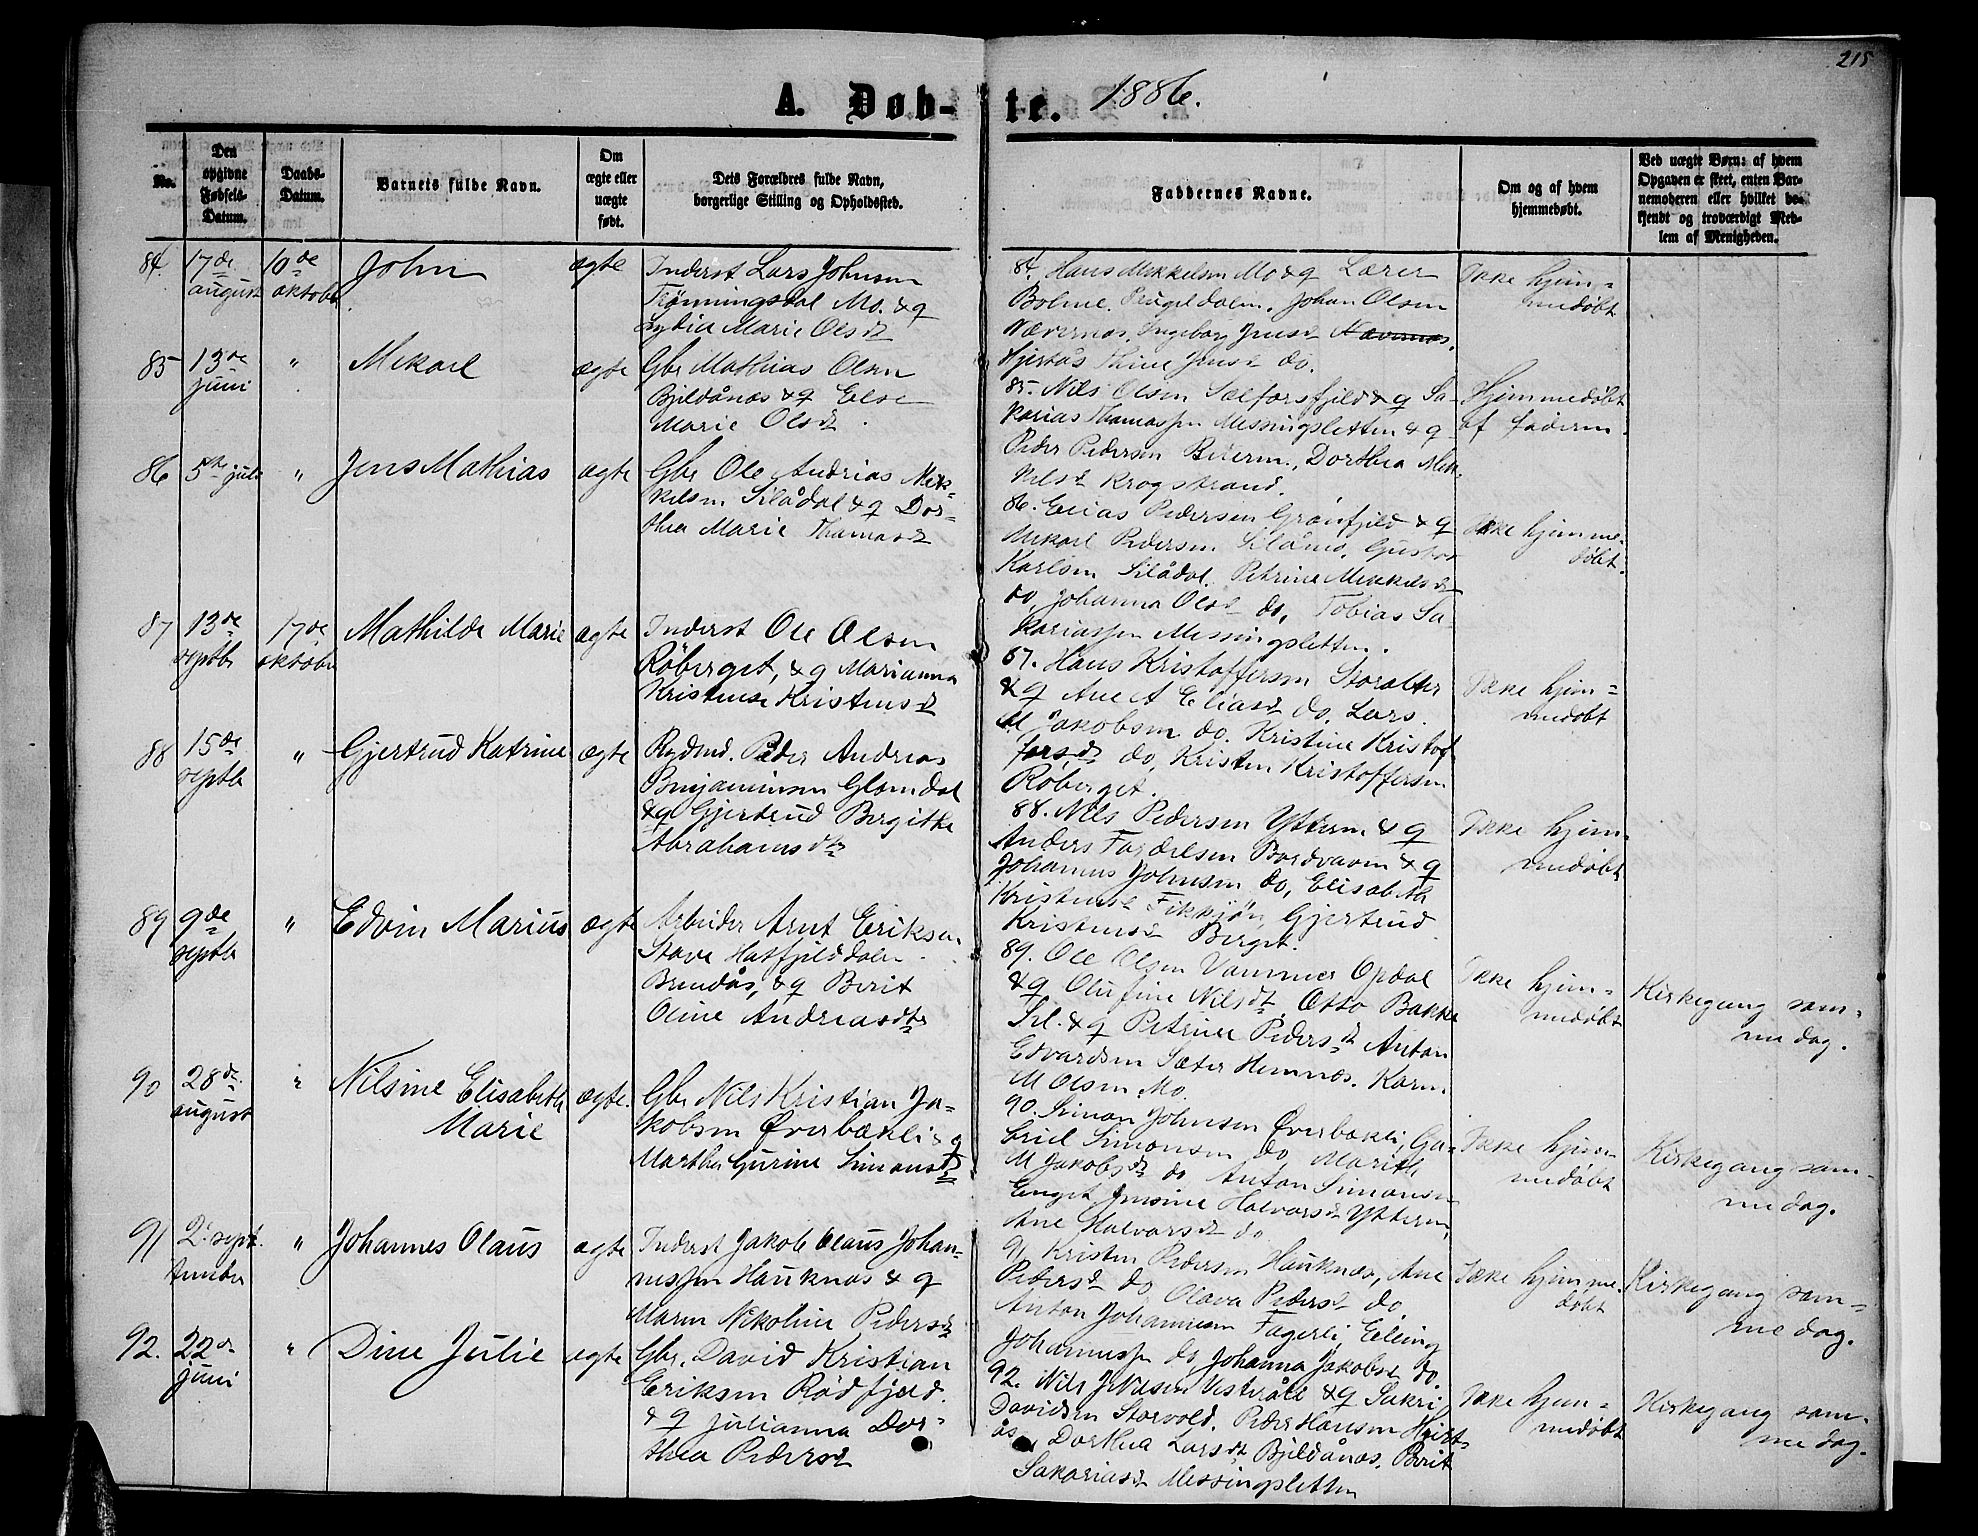 215
A. Døb-te. 1886.
No.
Den opgivne Fødsels-Datum.
Daabs-Datum.
Barnets fulde Navn.
Om ægte eller uægte født.
Dets Forældres fulde Navn, borgerlige Stilling og Opholdssted.
Faddernes Navne.
Om og af hvem hjemmedøbt.
Ved uægte Børn: af hvem Opgaven er skeet, enten Barnemoderen eller hvilket bekjendt og troværdigt Medlem af Menigheden.
84. 17de august 10de oktobr John ægte
Inderst Lars Johnsen
Trønningsdal Mo. & q
Lydia Marie Olsdt
84. Hans Mikkelsen Mo & q Lærer
Bolme. Prygeldalen. Johan Olsen
Nævernes. Ingeborg Jensd Nævernes.
Hjertås Thine Jensd do.
Ikke hjem=
medøbt
85 13de juni " Mekael ægte
Gbr Mathias Olsen
Bjeldånæs & q Else
Marie Olsdt.
85. Nils Olsen Selforsfjeld & q Sa-
karias Thomassen Messingsletten & q
Peder Pedersen Beieren., Dorthea Mik-
kelsd Krogstrand.
Hjemmedøbt
af faderen.
86 5te juli " Jens Mathias ægte
Gbr Ole Andrias Mik-
kelsen Silådal & q Dor-
thea Marie Thomasdt
86. Elias Pedersen Grånfjeld & q
Mekael Pedersen Silånes, Gustav
Karlsen Silådal. Petrine Mikkelsdt
do, Johanna Olsd do, Tobias Sa
kariassen Messingsletten.
Ikke hjemme-
døbt.
87 13de septbr 17de oktobr Mathilde Marie ægte
Inderst Ole Olsen
Røberget, & q Marianna
Kristense Kristensdt
87. Hans Kristoffersen Storalter
& q Ane A Eliasd do, Lars
M Jakobsen do. Kristine Kristof
fersdt do, Kristen Kristoffersen
Røberget.
Ikke hjem=
medøbt
88 15de septbr " Gjertrud Katrine ægte
Rydnd. Peder Andreas
Benjaminsen Glomdal
& q Gjertrud Birgithe
Abrahamsdtr
88. Nils Pedersen Ytteren & q
Anders Fardelsen Bordvaven & q
Johannes Johnsen do, Elisabeth
Kristensd Fikkjøn, Gjertrud
Kristensd Berget.
Ikke hjem-
medøbt
89 9de septbr " Edvin Marius ægte
Arbeider Arnt Eriksen
Stave Hatfjelddalen
Brendås, & q Berit
Oline Andreasdtr
89. Ole Olsen Vammer Opdal
& q Olufine Nilsdt, Otto Bakke
Sel. & q Petrine Pedersdt Anton
Edvardsen Sæter Hemnæs. Karen
M Olsen Mo.
Ikke hjem=
medøbt
Kirkegang sam=
me dag.
90 28de august " Nilsine Elisabeth
Marie ægte.
Gbr Nils Kristian Ja-
kobsen Øverbækli & q
Martha Gurine Simonsdt
90. Simon Johnsen Øverbækli, Ga-
briel Simonsen do Marith
M Jakobsdt do Anton Simonsen
Enget, Jensine Halvorsdt Ytteren,
Ane Halvorsdt do
Ikke hjem-
medøbt
Kirkegang sam-
me dag.
91 2. septtember " Johannes Olaus ægte
Inderst Jakob Olaus Johan-
nessen Hauknes & q
Maren Nikoline Pedersdt
91 Kristen Pedersen Hauknes, Ane
Pedersd do Olava Pedersd do
Anton Johannesen Fagerli, Elling
Johannessen do, Johanna Jakobsd do.
Ikke hjemme
døbt
Kirkegang sam=
me dag.
92. 22de juni " Dine Julie ægte
Gbr. David Kristian
Eriksen Rødfjeld.
& q Julianna Dor-
thea Pedersdt
92. Nils J Nilsen Vesterålt & q Sakri
Davidsen Storvold. Peder Hansen Hjert-
ås, Dorthea Larsdt Bjeldånæs, Berit
Sakariasdt Messingsletten
Ikke hjem=
medøbt
Kirkegang sam-
me dag.